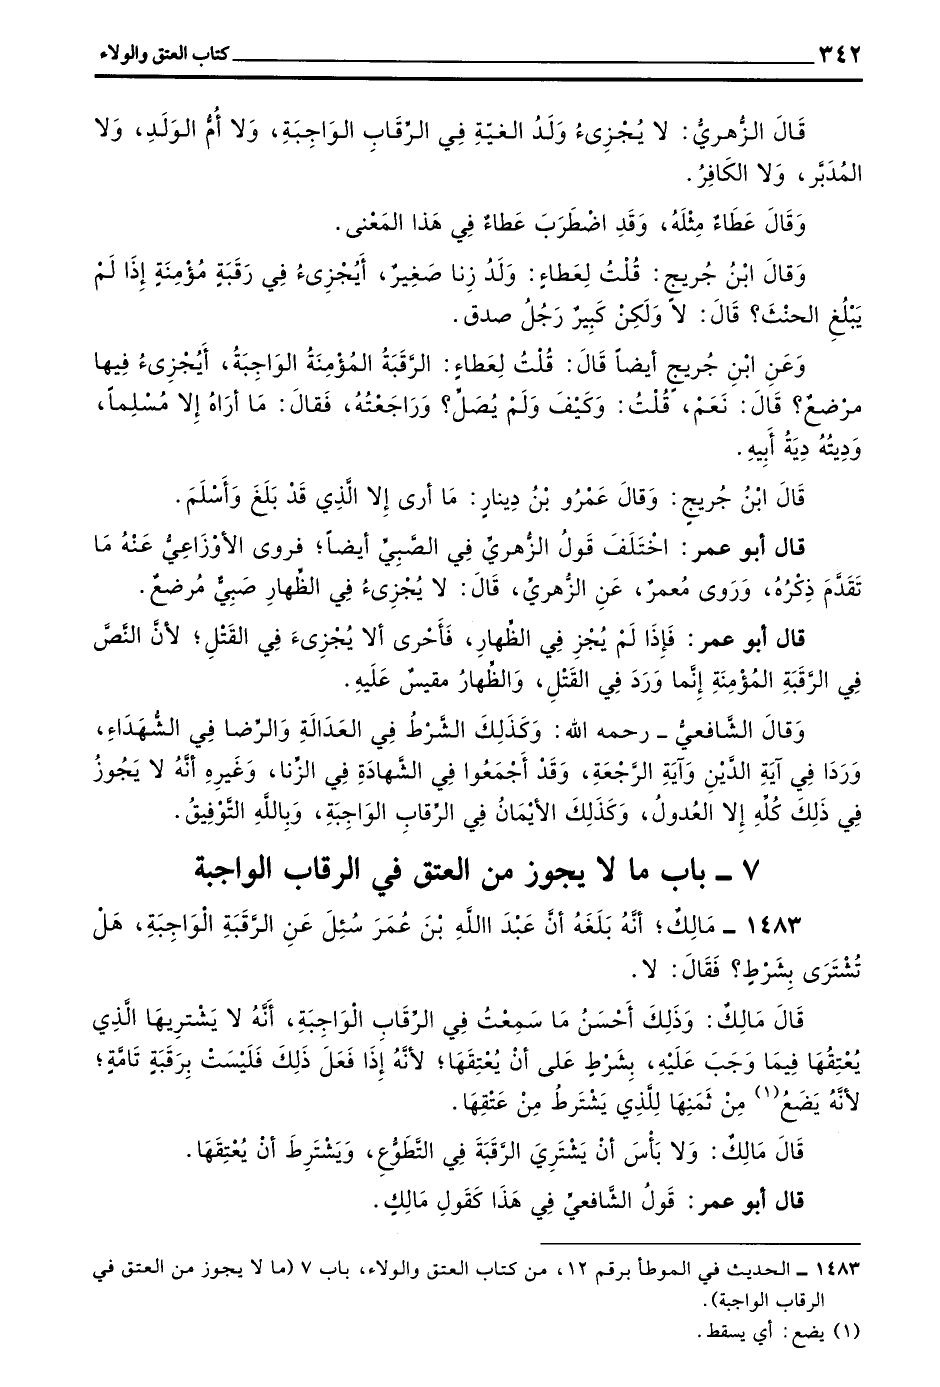 ٣٤٢ كتاب العتق والولاء
قَالَ الزُّهريُّ: لا يُجْزِىءُ وَلَدُ الغيّةِ فِي الرِّقَابِ الوَاجِبَةِ، وَلا أُمُّ الوَلَدِ، وَلا
المُدَبَّر، وَلا الكَافِرُ.
وَقَالَ عَطَاءٌ مِثْلَهُ، وَقَدِ اضْطَرَبَ عَطاءٌ فِي هَذَا المَعْنى.
وَقالَ ابْنُ جُريجٍ: قُلْتُ لِعَطاءٍ: وَلَدُ زِنا صَغِيرٌ، أَيُجْزِىءُ فِي رَقَبَةٍ مُؤْمِنَةٍ إِذَا لَمْ
يَبْلُغِ الحنْثَ؟ قَالَ: لاَ وَلَكِنْ كَبِيرٌ رَجُلُ صدق.
وَعَنِ ابْنِ جُريجٍ أيضاً قَالَ: قُلْتُ لِعَطاءٍ: الرَّقَبَةُ المُؤْمِنَةُ الوَاجِبَةُ، أَيُجْزِىءُ فِيها
مرْضعٌ؟ قَالَ: نَعَمْ، قُلْتُ: وَكَيْفَ وَلَمْ يُصَلِّ؟ وَرَاجَعْتُهُ، فَقالَ: مَا أرَاهُ إِلا مُسْلِماً،
وَدِيتُهُ دِيَةُ أَبِيهِ.
قَالَ ابْنُ جُريجٍ: وَقالَ عَمْرُو بْنُ دِينارٍ: مَا أرى إِلا الَّذِي قَدْ بَلَغَ وَأَسْلَمَ.
قال أبو عمر: اخْتَلَفَ قَولُ الزُّهريِّ فِي الصَّبِيِّ أيضاً؛ فروى الأوْزَاعِيُّ عَنْهُ مَا
تَقَدَّمَ ذِكْرُهُ، وَرَوى مُعمرٌ، عَنِ الزُّهريِّ، قَالَ: لا يُجْزِىءُ فِي الظِّهارِ صَبِيٌّ مُرضعٌ.
قال أبو عمر: فَإِذَا لَمْ يُجْزِ فِي الظِّهارِ، فَأَحْرى ألا يُجْزِىءَ فِي القَتْلِ؛ لأنَّ النَّصَّ
فِي الرَّقَبَةِ المُؤْمِنَةِ إِنَّما وَرَدَ فِي القَتْلِ، وَالظِّهارُ مقيسٌ عَلَيهِ.
وَقَالَ الشَّافعيُّ ـ رحمه الله: وَكَذَلِكَ الشَّرْطُ فِي العَدَالَةِ وَالرِّضا فِي الشُّهَدَاءِ،
وَرَدَا فِي آيَةِ الدَّيْنِ وَآيَةِ الرَّجْعَةِ، وَقَدْ أَجْمَعُوا فِي الشَّهادَةِ فِي الزِّنا، وَغَيرِهِ أنَّهُ لا يَجُوزُ
فِي ذَلِكَ كُلِّهِ إِلا العُدولُ، وَكَذَلِكَ الأيْمَانُ فِي الرِّقابِ الوَاجِبَةِ، وَبِاللَّهِ التَّوْفِيقُ.
٧ ـ باب ما لا يجوز من العتق في الرقاب الواجبة
١٤٨٣ ـ مَالِكٌ؛ أنَّهُ بَلَغَهُ أنَّ عَبْدَ االلَّهِ بْنَ عُمَرَ سُئِلَ عَنِ الرَّقَبَةِ الْوَاجِبَةِ، هَلْ
تُشْتَرَى بِشَرْطٍ؟ فَقَالَ: لا.
قَالَ مَالِكٌ: وَذَلِكَ أَحْسَنُ مَا سَمِعْتُ فِي الرِّقَابِ الْوَاجِبَةِ، أَنَّهُ لا يَشْتريهَا الَّذِي
يُعْتِقُهَا فِيمَا وَجَبَ عَلَيْهِ، بِشَرْطٍ عَلى أنْ يُعْتِقَهَا؛ لأنَّهُ إِذَا فَعَلَ ذَلِكَ فَلَيْسَتْ بِرَقَبَةٍ تَامَّةٍ؛
لأنَّهُ يَضَعُ(١) مِنْ ثَمَنِهَا لِلَّذِي يَشْتَرطُ مِنْ عَتْقِهَا.
قَالَ مَالِكٌ: وَلا بَأْسَ أنْ يَشْتَرِيَ الرَّقَبَةَ فِي التَّطَوُّعِ، وَيَشْتَرِطَ أنْ يُعْتِقَهَا.
قال أبو عمر: قَولُ الشَّافعيِّ فِي هَذَا كَقَولِ مَالِكٍ.
١٤٨٣ ـ الحديث في الموطأ برقم ١٢، من كتاب العتق والولاء، باب ٧ (ما لا يجوز من العتق في
الرقاب الواجبة).
(١) يضع: أي يسقط.